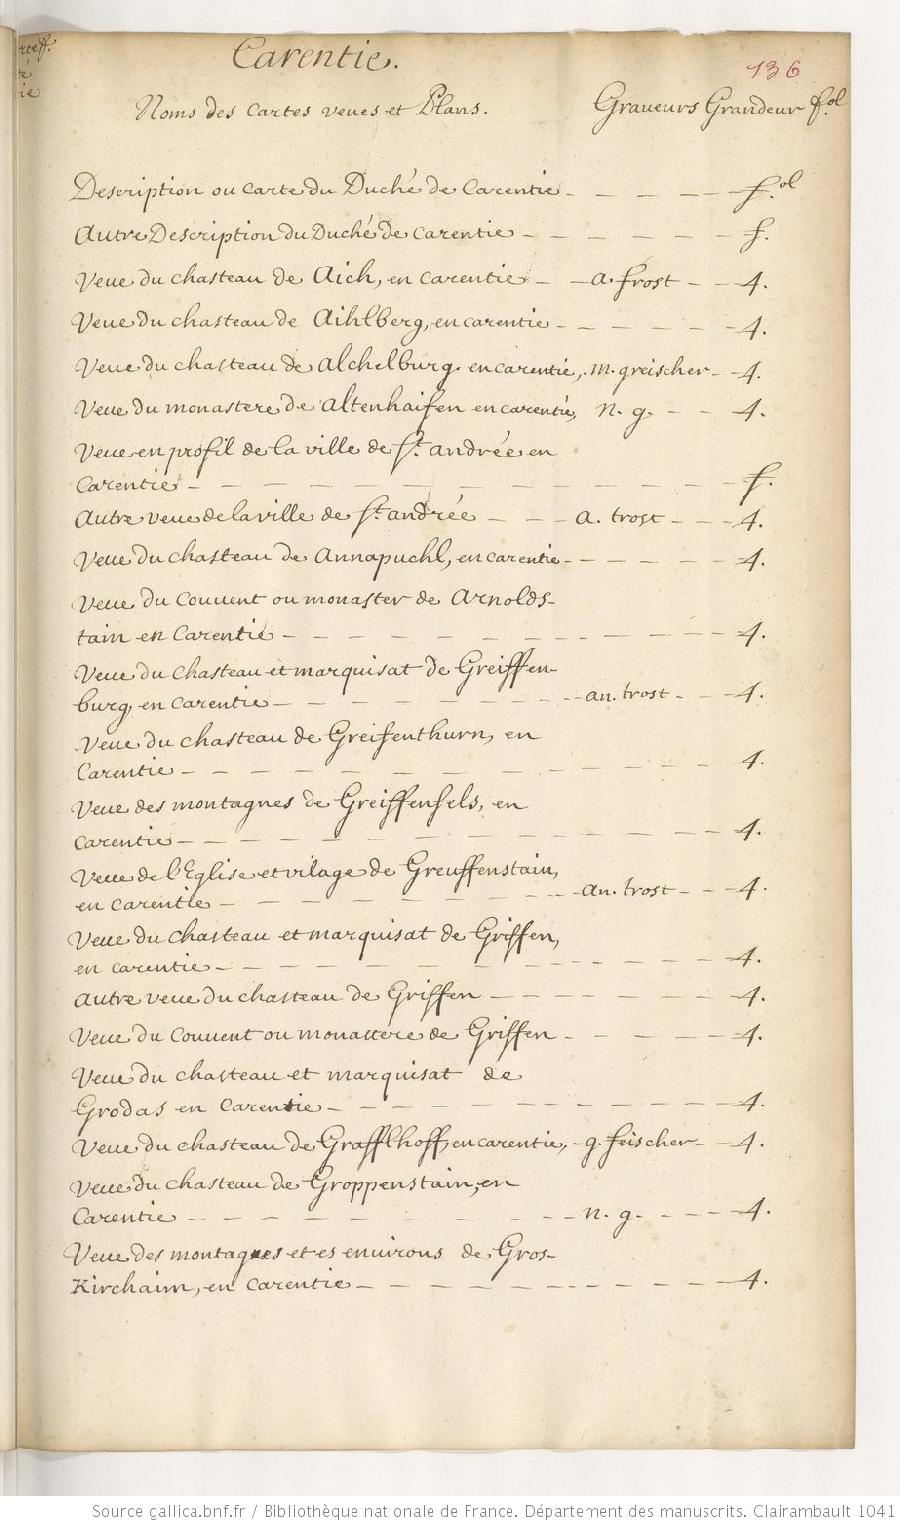 Carentie.
136
Noms des Cartes veues et Plans. Graveurs Grandeur f.ol
Description ou Carte du Duché de Carentie - - - - - f.ol
Autre Description du Duché de Carentie - - - - - - f.
Veue du chasteau de Aich, en Carentie - - a. frost - - 4.
Veue du chasteau de Aihlberg, en carentie - - - - - - 4.
Veue du chasteau de Alchelburg en carentie, m. greischer - - 4.
Veue du monastere de Altenhaifen en carentie, n. g. - - 4.
Veue en profil de la ville de St. andrée en
Carentie - - - - - - - - - - - - f.
Autre veue de la ville de St. andrée - - - a. trost - - - 4.
Veue du chasteau de Annapuchl, en carentie - - - - - - 4.
Veue du Couvent ou monaster de Arnolds-
tain en Carentie - - - - - - - - - - - 4.
Veue du Chasteau et marquisat de Greiffen-
burg, en Carentie - - - - - - - - - an. trost - - - 4.
Veue du chasteau de Greifenthurn, en
Carentie - - - - - - - - - - - - 4.
Veue des montagnes de Greiffenfels, en
carentie - - - - - - - - - - - - 4.
Veue de l'Eglise et vilage de Greuffenstain,
en carentie - - - - - - - - - an. trost - - - 4.
Veue du chasteau et marquisat de Griffen,
en carentie - - - - - - - - - - - - 4.
Autre veue du chasteau de Griffen - - - - - - - 4.
Veue du Couvent ou monastere de Griffen - - - - - 4.
Veue du chasteau et marquisat de
Grodas en Carentie - - - - - - - - - - 4.
Veue du chasteau de Grafflhoff, en carentie, - g. feischer - - 4.
Veue du chasteau de Groppenstain, en
Carentie - - - - - - - - - n. g. - - - - 4.
Veue des montagnes et es environs de Gros-
Kirchaim, en Carentie - - - - - - - - - - 4.
Source gallica.bnf.fr / Bibliothèque nationale de France. Département des manuscrits. Clairambault 1041